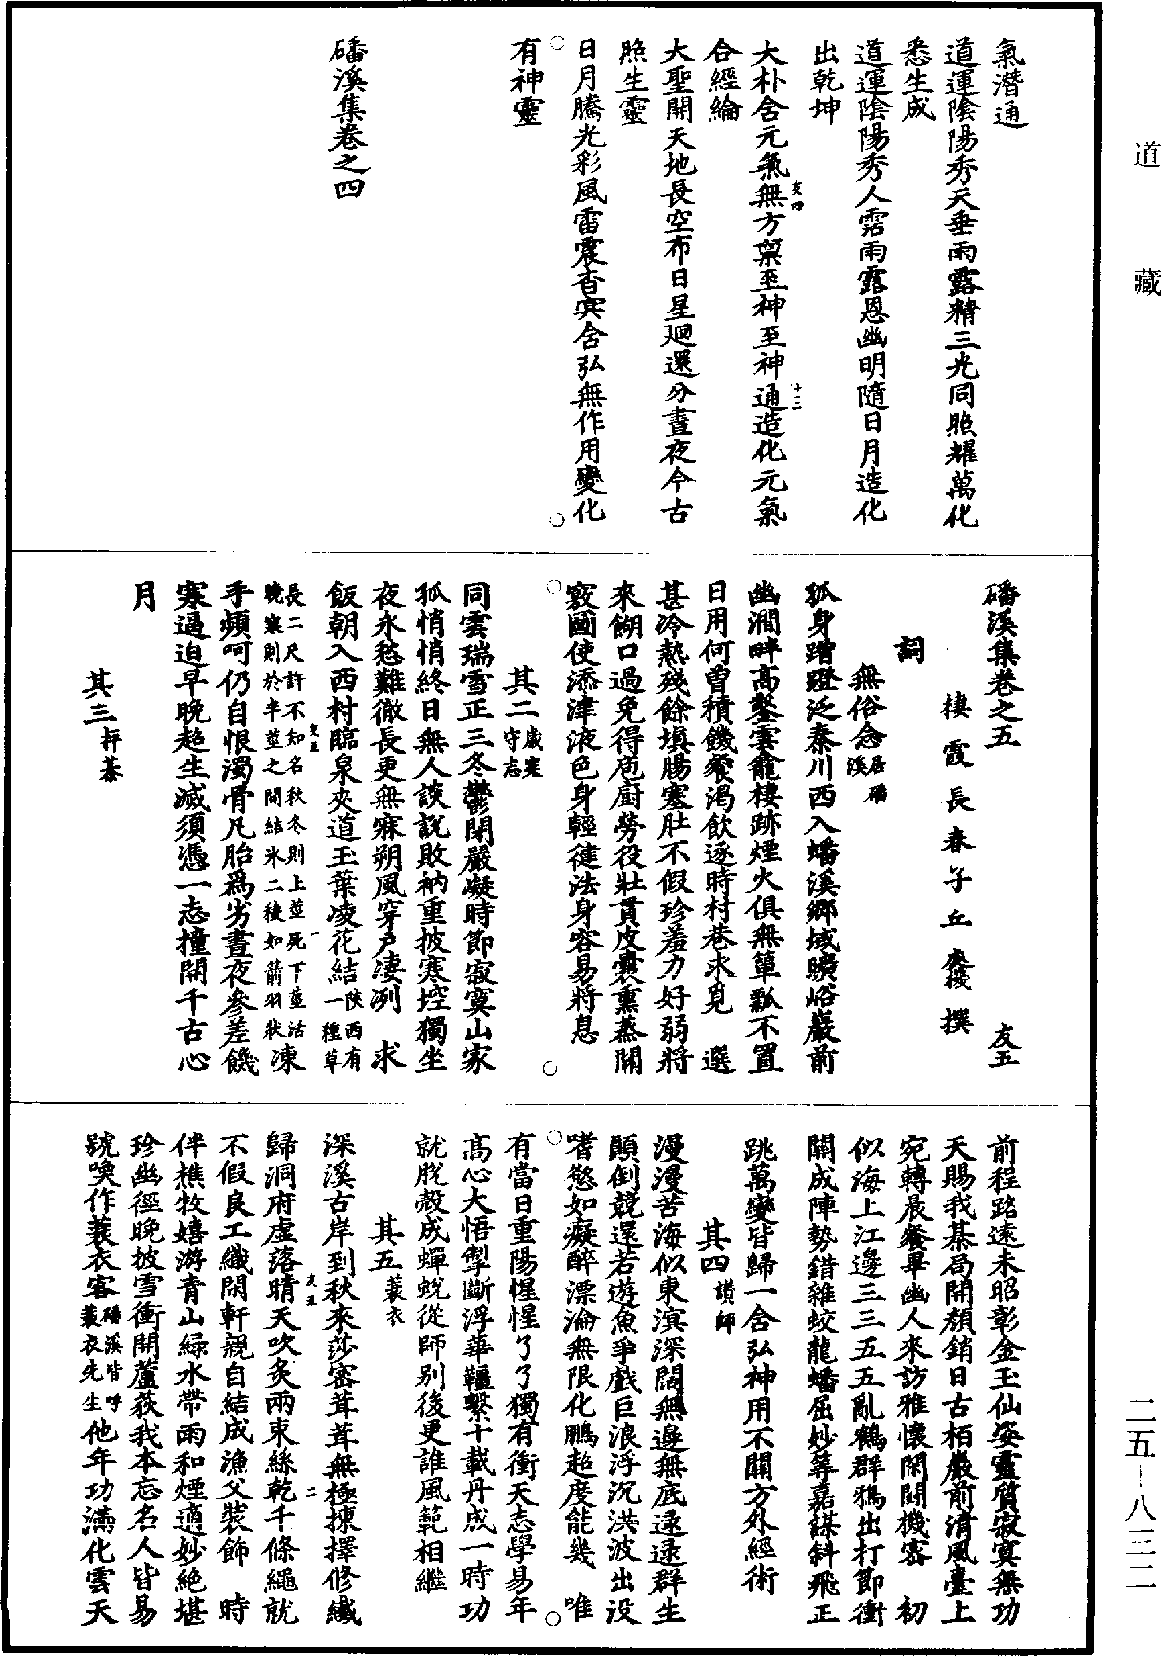 道藏
氣潛通
道運陰陽秀天垂雨露精三光同照耀萬化
悉生成
道運陰陽秀人霑雨露恩幽明隨日月造化
出乾坤
大朴含元氣無方稟至神至神通造化元氣
合經綸
大聖開天地長空布日星廻還分晝夜今古
照生靈
日月騰光彩風雷震杳冥含弘無作用變化
有神靈
磻溪集卷之四
磻溪集卷之五
友五
棲霞長春子丘處機撰
詞
無俗念居磻溪
孤身蹭蹬泛秦川西入蟠溪鄉域曠峪巖前
幽澗畔高鑿雲龕棲跡煙火俱無簞瓢不置
日用何曾積饑飡渴飲逐時村巷求覓 選
甚冷熱殘餘填腸塞肚不假珍羞力好弱將
來餬口過免得庖廚勞役壯貫皮囊熏蒸關
竅圖使添津液色身輕健法身容易將息
其二歲寒守志
同雲瑞雪正三冬鬱閉嚴凝時節寂寞山家
孤悄悄終日無人談說敗衲重披寒埪獨坐
夜永愁難徹長更無寐朔風穿戶凄冽 求
飯朝入西村臨泉夾道玉葉凌花結陝西有一種草
長二尺許不知名秋冬則上莖死下莖活
晚寒則於半莖之間結氷二稜如箭羽狀凍
手頻呵仍自恨濁骨凡胎爲劣晝夜參差饑
寒逼迫早晚超生滅須憑一志撞開千古心
月
其三枰棊
前程路遠未昭彰金玉仙姿靈質寂寞無功
天賜我棊局開顏銷日古栢巖前清風臺上
宛轉晨飡畢幽人來訪雅懷閑鬭機密 初
似海上江邊三三五五亂鶴群鴉出打節衝
關成陣勢錯雜蛟龍蟠屈妙筭嘉謀斜飛正
跳萬變皆歸一含弘神用不關方外經術
其四讚師
漫漫苦海似東溟深闊無邊無底逐逐群生
顛倒競還若遊魚爭戲巨浪浮沉洪波出沒
嗜慾如癡醉漂淪無限化鵬超度能幾 唯
有當日重陽惺惺了了獨有衝天志學易年
高心大悟掣斷浮華韁繫十載丹成一時功
就脫殼成蟬蛻從師別後更誰風範相繼
其五蓑衣
深溪古岸到秋來莎密茸茸無極揀擇修纖
歸洞府虛落晴天吹炙兩束絲乾千條繩就
不假良工織閑軒親自結成漁父裝飾 時
伴樵牧嬉游青山綠水帶雨和煙適妙絕堪
珍幽徑晚披雪衝開蘆荻我本忘名人皆易
號喚作蓑衣客磻溪皆呼蓑衣先生他年功滿化雲天
二五-八三二